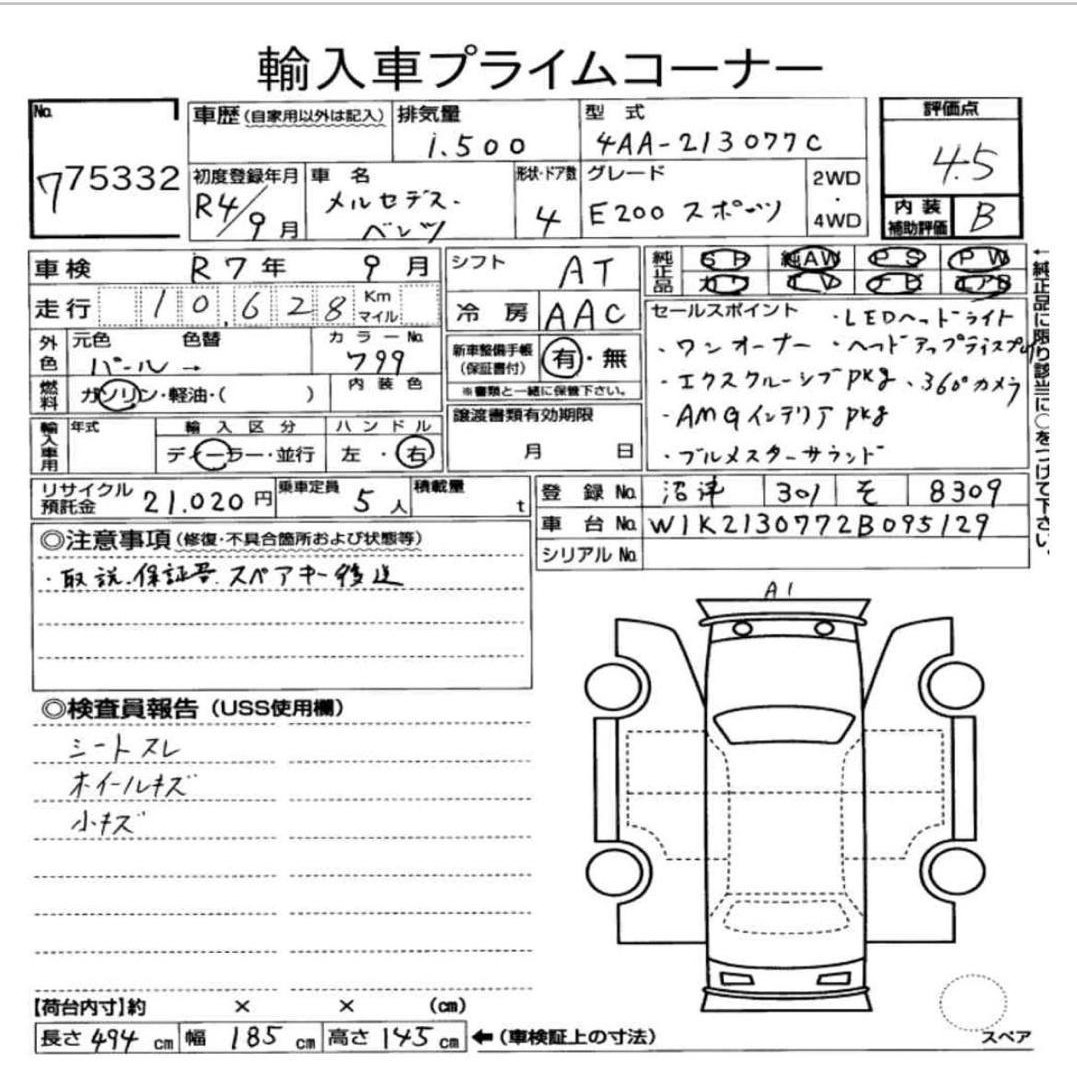 輸入車プライムコーナー
No.
775332
車歴(自家用以外は記入)
排気量
1.500
型 式
4AA-213077C
評価点
4.5
内装補助評価
B
初度登録年月
R4/9月
車 名
メルセデス・
ベンツ
形状・ドア数
4
グレード
E200 スポーツ
2WD
・
4WD
車検 R7年 9月
シフト AT
純正品
SR 純AW PS PW
カワ TV ナビ エアB
走行 10,628 Km マイル
冷房 AAC
外色
元色 色替
パール →
カラーNo.
799
内装色
燃料
ガソリン・軽油・( )
新車整備手帳
(保証書付)
有・無
※書類と一緒に保管下さい。
譲渡書類有効期限
月 日
セールスポイント
・LEDヘッドライト
・ワンオーナー ・ヘッドアップディスプレイ
・エクスクルーシブPKg ・360°カメラ
・AMGインテリア PKg
・ブルメスターサウンド
←純正品に限り該当に○をつけて下さい。
輸入車用
年式
輸入区分
ディーラー・並行
ハンドル
左・右
リサイクル預託金 21.020円
乗車定員 5人
積載量 t
登録No. 沼津 301 そ 8309
車台No. W1K2130772B095129
シリアルNo.
◎注意事項(修復・不具合箇所および状態等)
・取説.保証書.スペアキー後送
A1
◎検査員報告(USS使用欄)
シートスレ
ホイールキズ
小キズ
【荷台内寸】約 × × (cm)
長さ 494 cm 幅 185 cm 高さ 145 cm ←(車検証上の寸法)
スペア